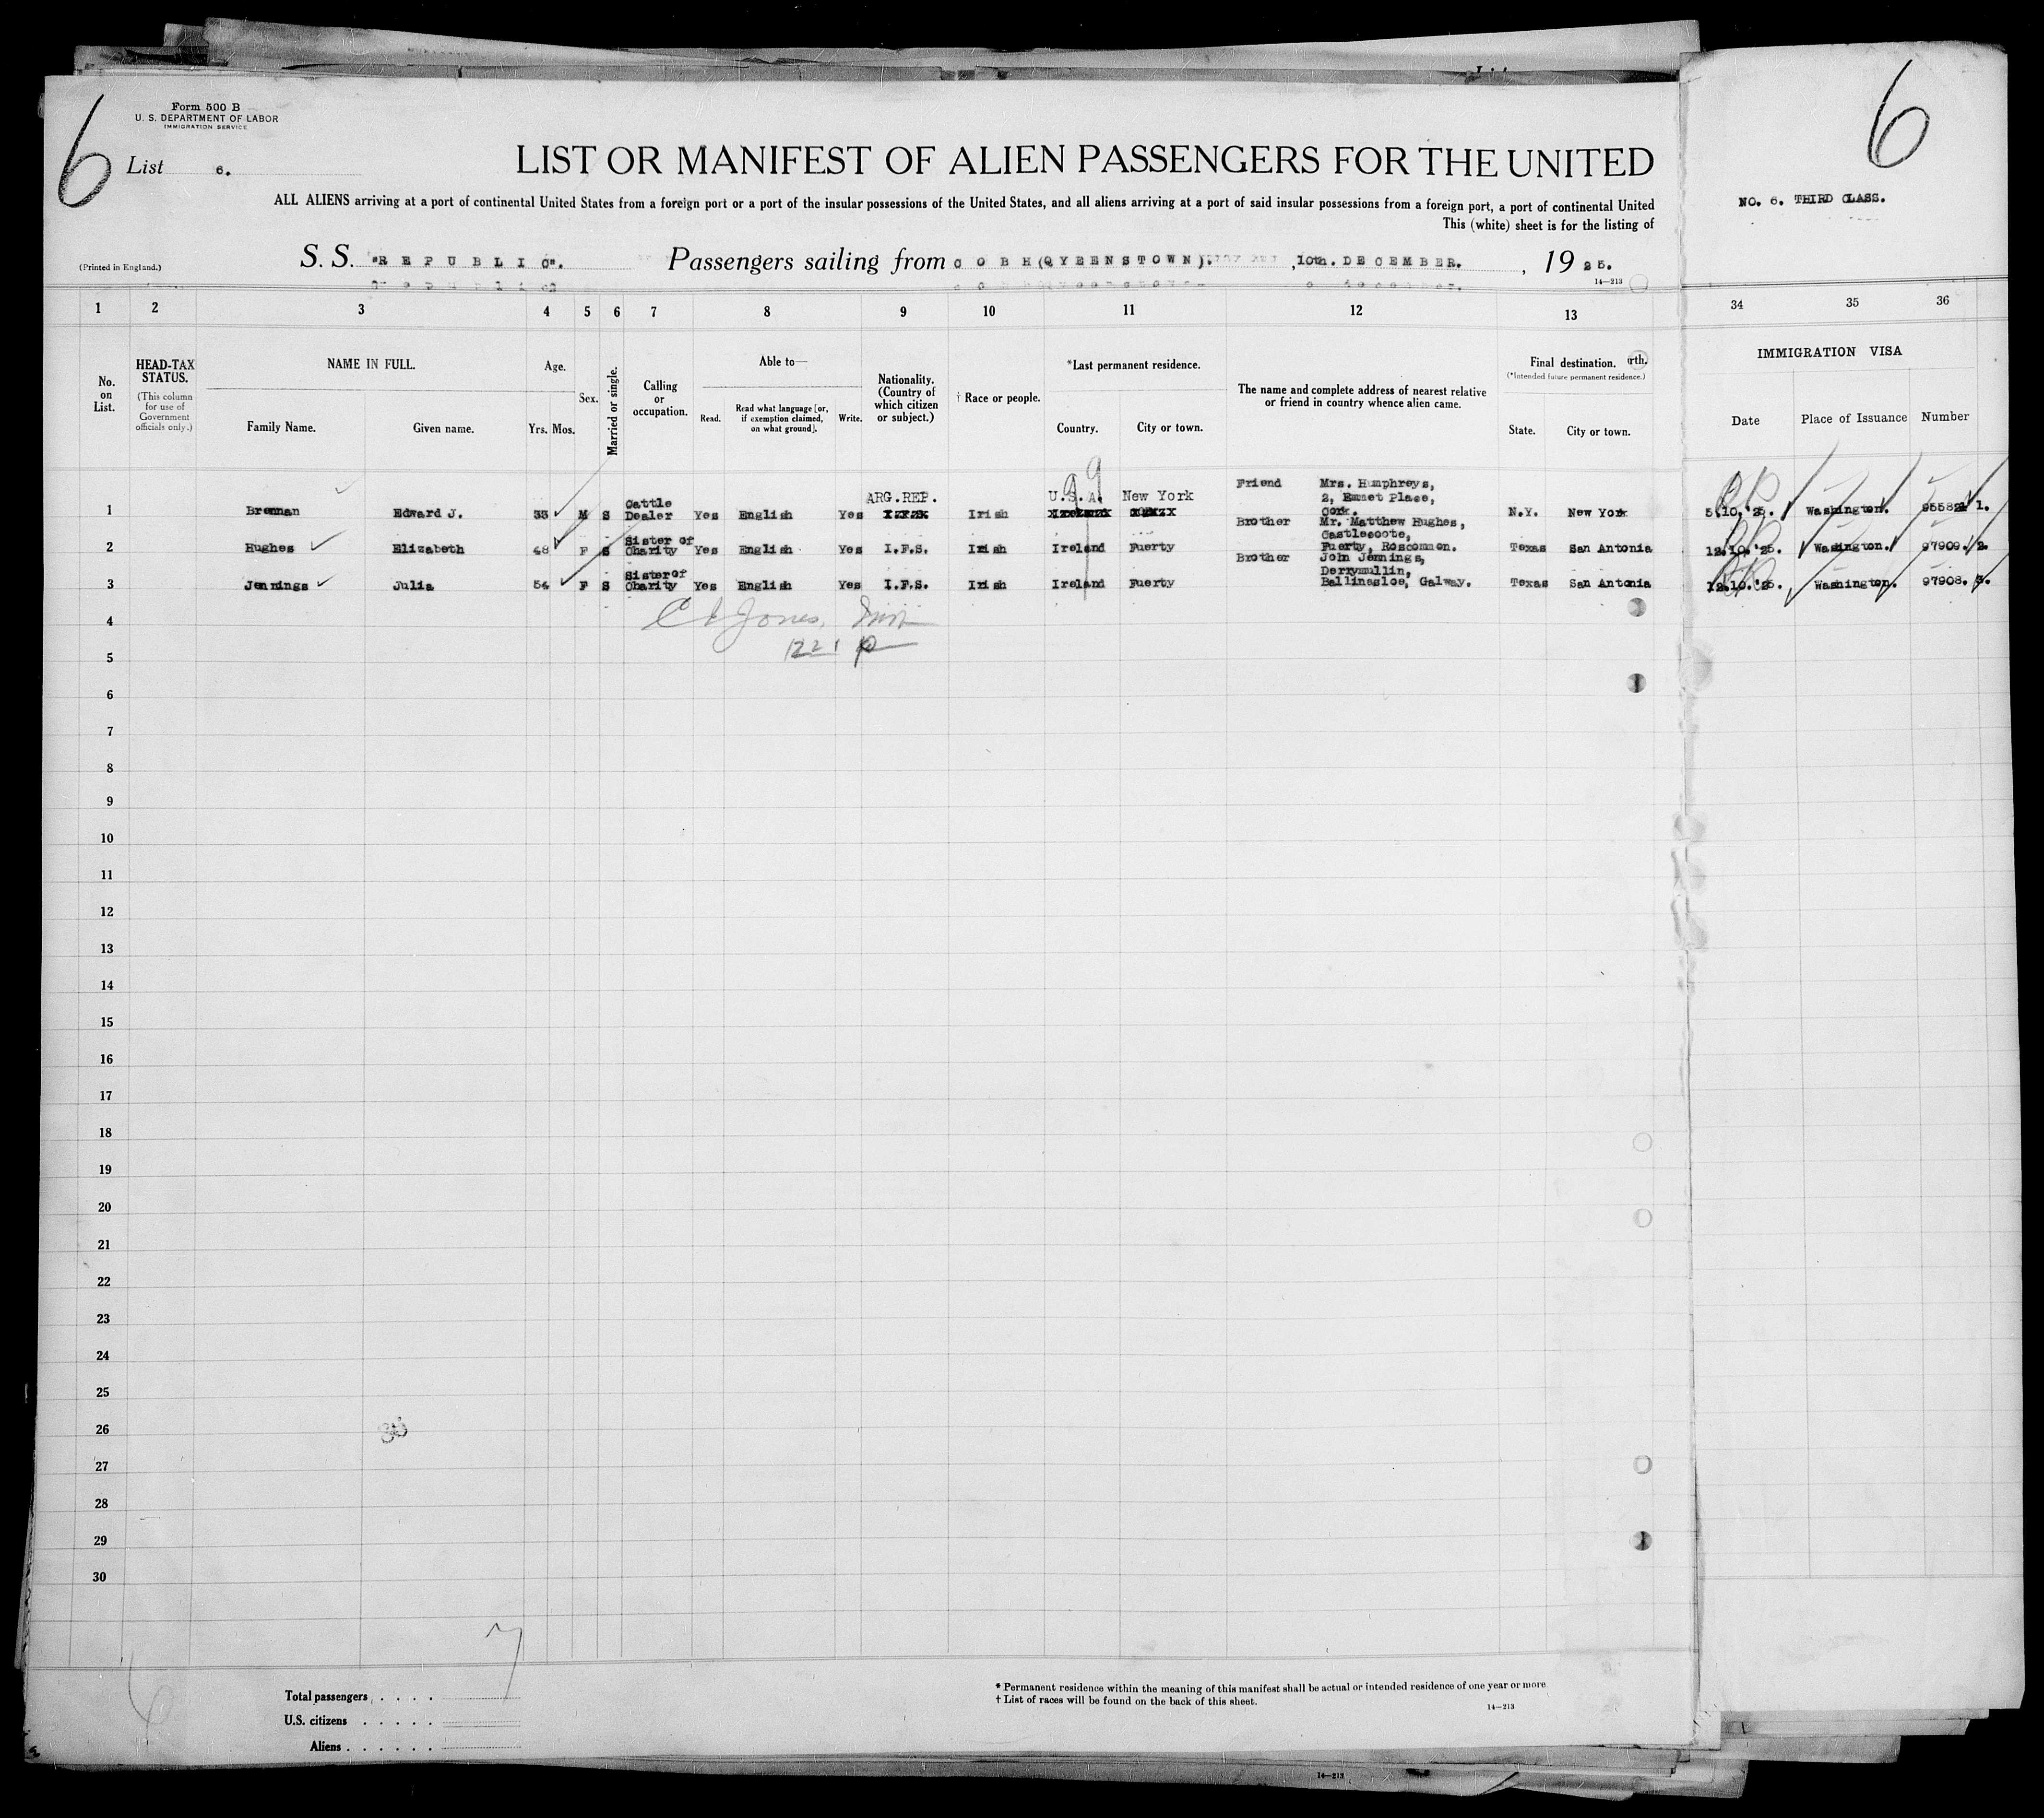 6
Form 500 B
U. S. DEPARTMENT OF LABOR
IMMIGRATION SERVICE
List 6.
LIST OR MANIFEST OF ALIEN PASSENGERS FOR THE UNITED
ALL ALIENS arriving at a port of continental United States from a foreign port or a port of the insular possessions of the United States, and all aliens arriving at a port of said insular possessions from a foreign port, a port of continental United
This (white) sheet is for the listing of
(Printed in England.)
S. S. "REPUBLIC". Passengers sailing from COBH(QYEENSTOWN). ,10th. DECEMBER. , 1925.
14—213
6
NO. 6. THIRD CLASS.
1 2 3 4 5 6 7 8 9 10 11 12 13 34 35 36
No. on List.
HEAD-TAX STATUS.
(This column for use of Government officials only.)
NAME IN FULL.
Family Name. Given name.
Age.
Yrs. Mos.
Sex.
Married or single.
Calling or occupation.
Able to—
Read. Read what language [or, if exemption claimed, on what ground]. Write.
Nationality. (Country of which citizen or subject.)
† Race or people.
*Last permanent residence.
Country. City or town.
The name and complete address of nearest relative or friend in country whence alien came.
Final destination.
(*Intended future permanent residence.)
State. City or town.
rth.
IMMIGRATION VISA
Date Place of Issuance Number
1 Brennan Edward J. 33 M S Cattle Dealer Yes English Yes ARG.REP. Irish U.S.A. New York Friend Mrs. Humphreys, 2, Emmet Place, Cork. N.Y. New York 5.10.'25. Washington. 1.
2 Hughes Elizabeth 48 F S Sister of Charity Yes English Yes I.F.S. Irish Ireland Fuerty Brother Mr. Matthew Hughes, Castlecoote, Fuerty, Roscommon. Texas San Antonia 12.10.'25. Washington. 97909. 2.
3 Jennings Julia 54 F S Sister of Charity Yes English Yes I.F.S. Irish Ireland Fuerty Brother John Jennings, Derrymullin, Ballinasloe, Galway. Texas San Antonia 12.10.'25. Washington. 97908. 3.
4
Jones,
5
1221
6
7
8
9
10
11
12
13
14
15
16
17
18
19
20
21
22
23
24
25
26
27
28
29
30
Total passengers . . . .
U.S. citizens . . . . .
Aliens . . . . . .
* Permanent residence within the meaning of this manifest shall be actual or intended residence of one year or more.
† List of races will be found on the back of this sheet.
14—213
14—213